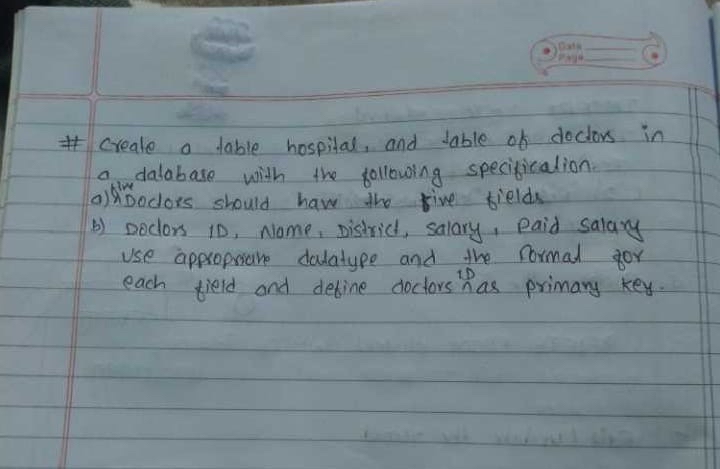 Date
Page
# Create a table hospital, and table of doctors in
a database with the following specification.
a) five Doctors should have the five fields
b) Doctors ID, Name, District, salary, Paid salary
use appropriate datatype and the format for
each field and define doctors ID as primary key.